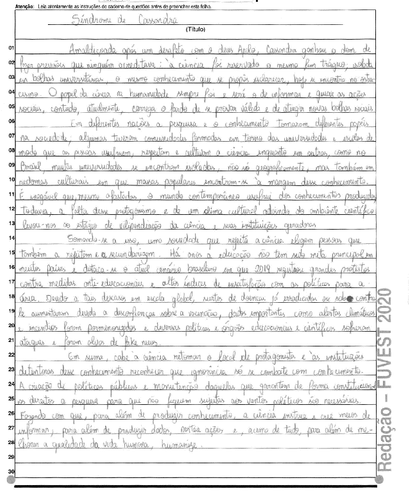 Atenção: Leia atentamente as instruções do caderno de questões antes de preencher esta folha.
Síndrome de Cassandra
(Título)
01 Amaldiçoada após um desafeto com o deus Apolo, Cassandra ganhou o dom de
02 fazer previsões que ninguém acreditava: a ciência foi reservado o mesmo fim trágico, isolada
03 em bolhas universitárias, o mesmo conhecimento que se propôs esclarecer, hoje se encontra no ostra
04 cismo. O papel da ciência na humanidade sempre foi e será o de informar e guiar as ações
05 sociais, contudo, atualmente, carrega o fardo de se provar válida e de atingir novas bolhas sociais.
06 Em diferentes nações a pesquisa e o conhecimento tomaram diferentes papéis
07 na sociedade, algumas tiveram comunidades formadas em torno das universidades e centros de
08 modo que as pessoas usufruem, respeitam e cultuam a ciência, enquanto em outras, como no
09 Brasil, muitas universidades se encontram isoladas, não só geograficamente, mas também em
10 redomas culturais em que massas populares encontram-se à margem desse conhecimento.
11 É inegável que, mesmo afastados, o mundo contemporâneo usufrui dos conhecimentos produzidos.
12 Todavia, a falta desse protagonismo e de um clima cultural advindo do ambiente científico
13 levar-nos ao estágio de elipendiação da ciência e suas instituições geradoras.
14 Somando-se a isso, uma sociedade que rejeita a ciência elegem pessoas que
15 também a refutam e a secundarizam. Há anos a educação não tem sido meta principal em
16 muitos países e destaca-se o atual cenário brasileiro em que 2019 registrou grandes protestos
17 contra medidas anti-educacionais e altos índices de insatisfação com as políticas para a
18 área. Devido a tais descasos em escala global, surtos de doenças já erradicadas ou sob contro
19 le aumentaram devido a desconfianças sobre a vacinação, dados importantes como alertas climáticos
20 e incêndios foram menosprezados e diversos políticos e órgãos educacionais e científicos sofreram
21 ataques e foram alvos de fake news.
22 Em suma, cabe à ciência retomar o local de protagonista e às instituições
23 detentoras desse conhecimento reconhecer que ignorância só se combate com conhecimento.
24 A criação de políticas públicas e manutenção daquelas que garantem de forma constitucional
25 os direitos a pesquisa para que não fiquem sujeitos aos ventos políticos são necessárias.
26 Fazendo com que, para além de produzir conhecimento, a ciência instrua e crie meios de
27 informar, para além de produzir dados, norteie ações e, acima de tudo, para além de me-
28 lhorar a qualidade da vida humana, humanize.
29
30
Redação – FUVEST 2020